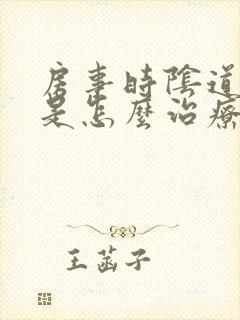 房事時陰道
是怎麼治療
王菡子